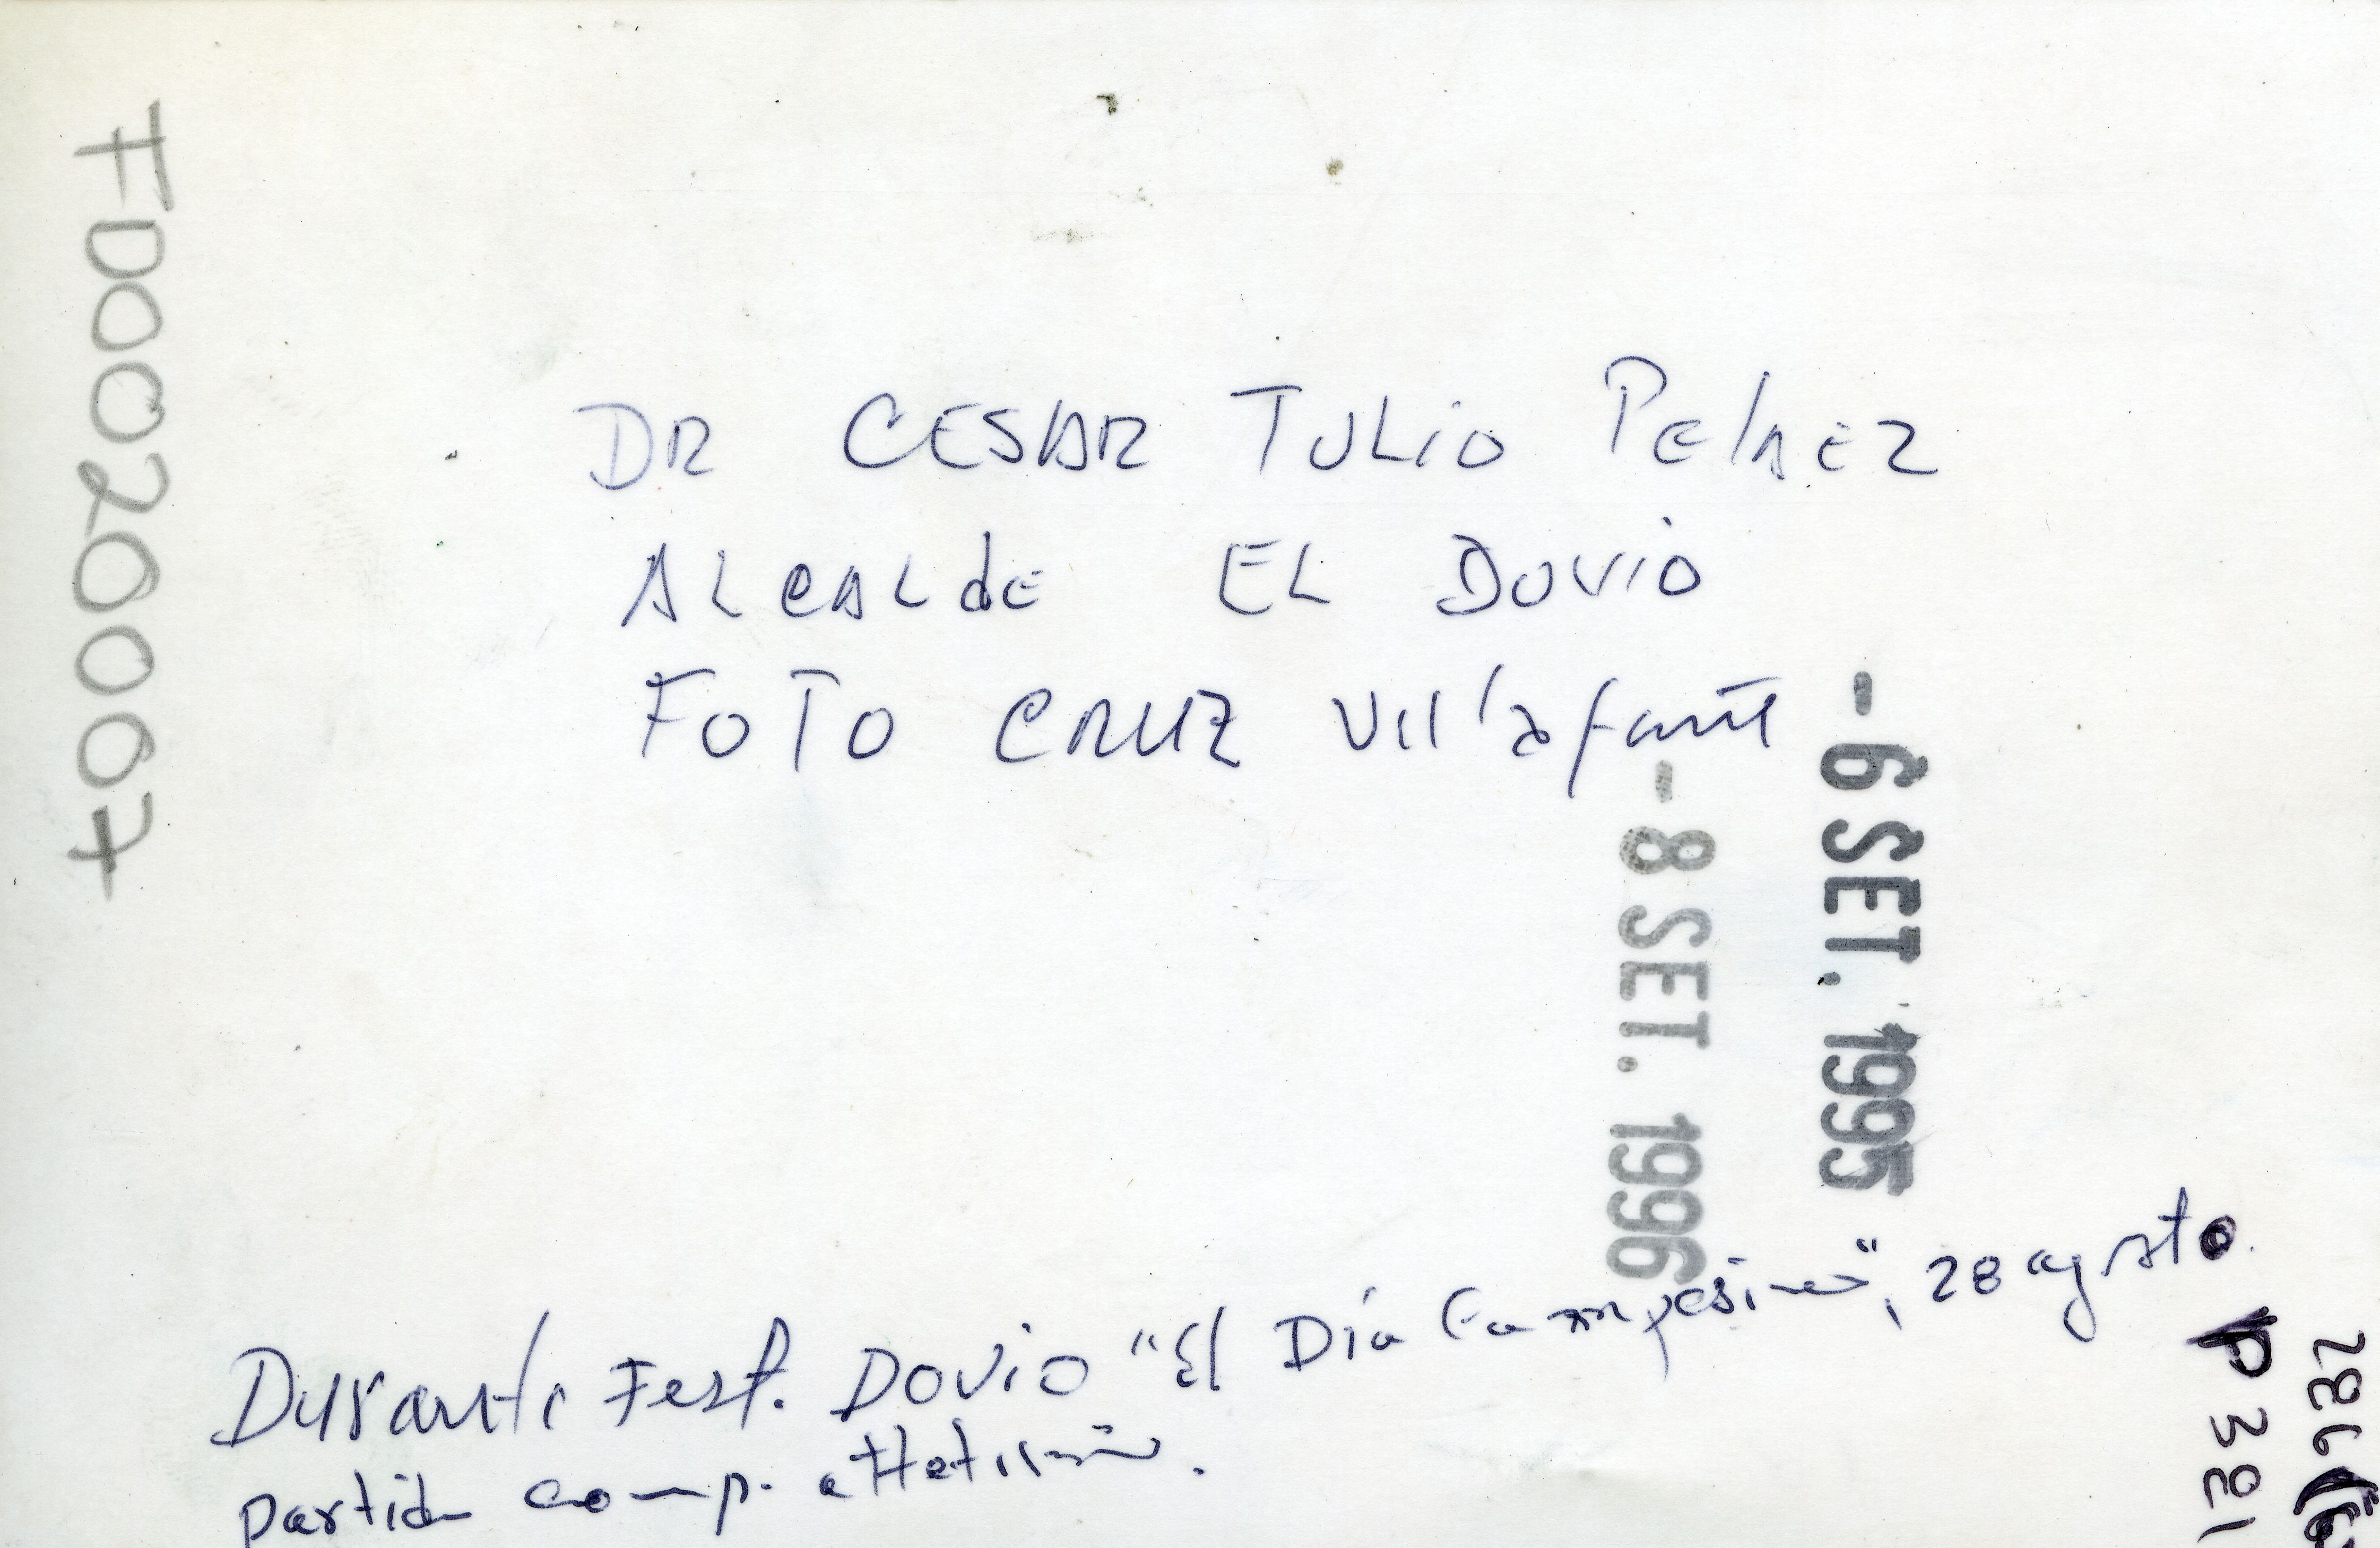 FD0020067
DR CESAR TULIO PelAEZ
ALCALdE EL DOViO
FOTO CRUZ Villafañe
- 6 SET. 1995
- 8 SET. 1996
Durante Fest. DOViO "El Día Campesino", 28 agosto.
partida comp. atletismo.
P 381